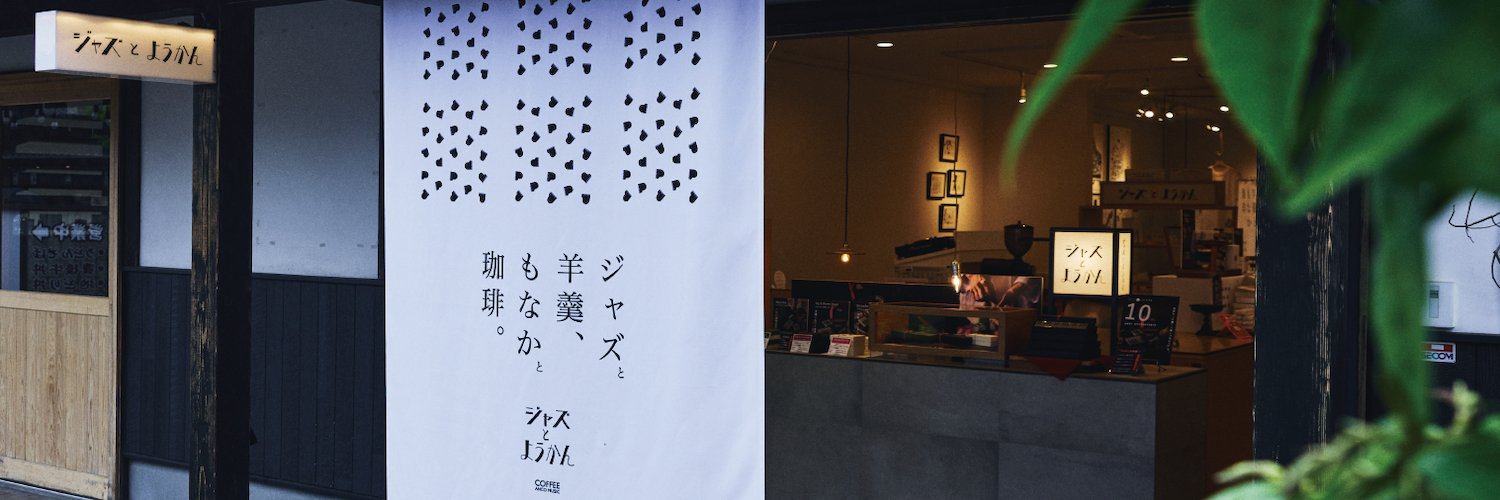 ジャズ と ようかん
営業中
ジャズと
羊羹、
もなかと
珈琲。
ジャズ
と
ようかん
COFFEE
ANCO MUSIC
ジャズ と ようかん
ジャズ
と
ようかん
10
SECOM